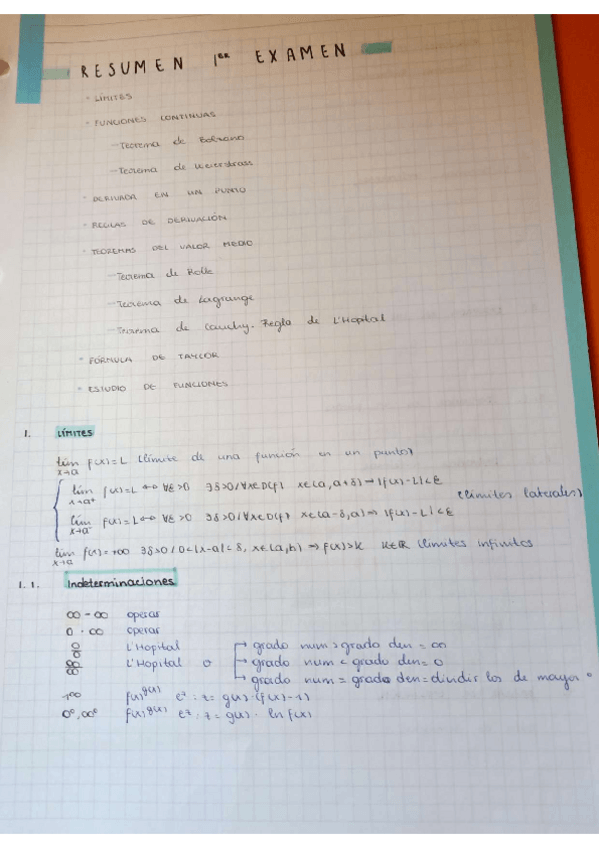 RESUMEN 1er EXAMEN
· LÍMITES
· FUNCIONES CONTINUAS
- Teorema de Bolzano
- Teorema de Weierstrass
· DERIVADA EN UN PUNTO
· REGLAS DE DERIVACIÓN
· TEOREMAS DEL VALOR MEDIO
- Teorema de Rolle
- Teorema de Lagrange
- Teorema de Cauchy. Regla de L'Hopital
· FÓRMULA DE TAYLOR
· ESTUDIO DE FUNCIONES
1. LÍMITES
lim x→a f(x)=L (límite de una función en un punto)
lim x→a⁺ f(x)=L ↔ ∀ε>0 ∃δ>0/∀x∈D(f) x∈(a,a+δ)⇒|f(x)-L|<ε
(límites laterales)
lim x→a⁻ f(x)=L ↔ ∀ε>0 ∃δ>0/∀x∈D(f) x∈(a-δ,a)⇒|f(x)-L|<ε
lim x→a f(x)=+∞ ∃δ>0/0<|x-a|<δ, x∈(a,b)⇒f(x)>K K∈R (límites infinitos
1.1. Indeterminaciones
∞-∞ operar
0·∞ operar
0/0 L'Hopital → grado num > grado den = ∞
∞/∞ L'Hopital o → grado num < grado den = 0
→ grado num = grado den = dividir los de mayor °
1^∞ f(x)^g(x) e^z : z = g(x)·(f(x)-1)
0⁰,∞⁰ f(x)^g(x) e^z : z = g(x) · ln f(x)